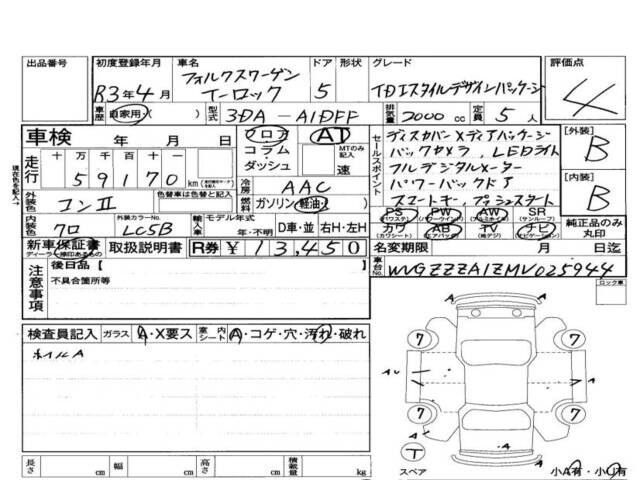 出品番号
初度登録年月
R3年4月
車歴
自家用・( )
車名
フォルクスワーゲン
T-ロック
ドア
5
形状
グレード
TDIスタイルデザインパッケージ
評価点
4
型式
3DA-A1DFF
排気量
2000 cc
定員
5人
車検
年 月 日
走行
十万千百十
59170
km
フロア
コラム
ダッシュ
AT
MTのみ記入
速
冷房
AAC
燃料
ガソリン・軽油・
外装色
コンII
色替車は色替と記入
内装色
クロ
外装カラーNo.
LC5B
輸入車
モデル年式
年・不明
D車・並
右H・左H
現在色を記入
セールスポイント
ディスカバーメディアパッケージ
バックカメラ, LEDライト
フルデジタルメーター
パワーバックドア
スマートキー, プッシュスタート
[外装]
B
[内装]
B
PS
(パワステ)
PW
(パワーウィンド)
AW
(アルミホイル)
SR
(サンルーフ)
カワ
(カワシート)
AB
(エアバック)
TV
(地デジ)
ナビ
(ナビゲーション)
純正品のみ丸印
新車保証書
ディーラー捺印あるもの
取扱説明書
R券
¥13,450
名変期限
月 日迄
車台No.
WVGZZZA1ZMV025944
注意事項
後日品【
不具合箇所等
ロック車
検査員記入
ガラス
A・X要ス
室内シート
A・コゲ・穴・汚れ・破れ
ホイルA
A
7
7
7
7
A
A
A
T
スペア
小A有・小U有
長さ
cm
幅
cm
高さ
cm
積載量
kg